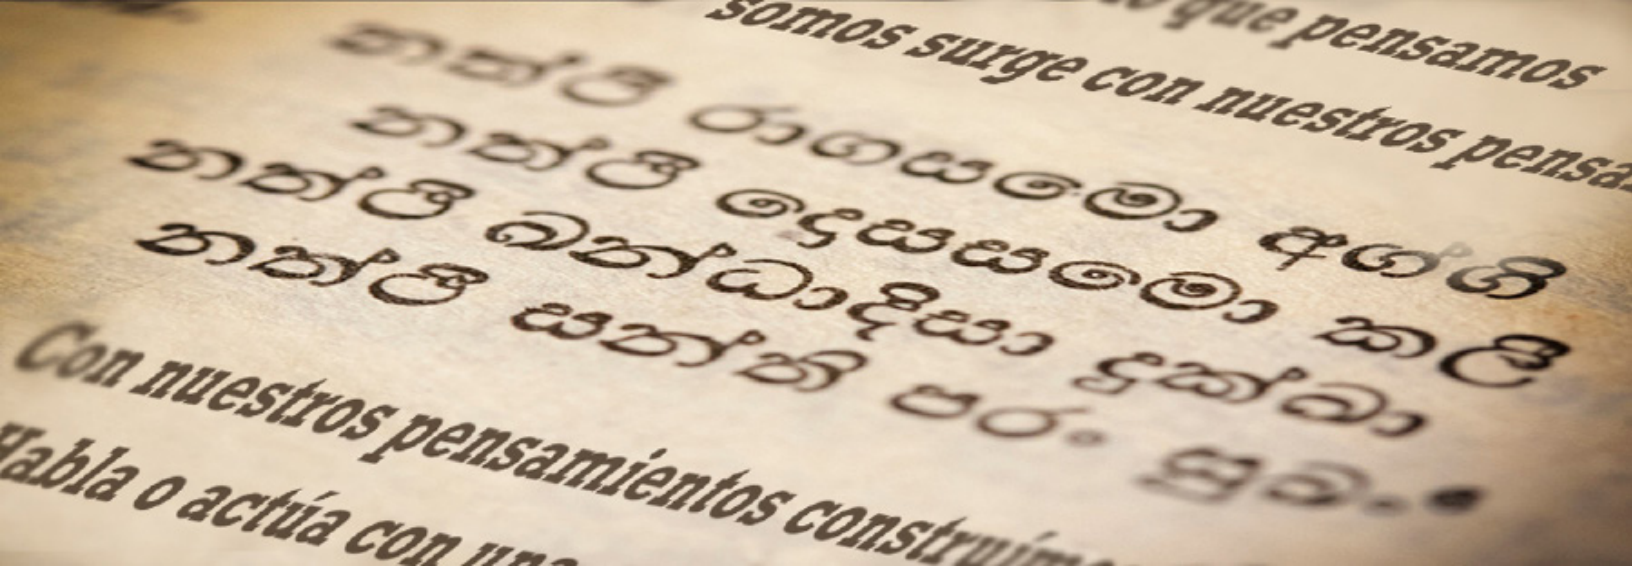 que pensamos
somos surge con nuestros
නත්ථි රාගසමො අග්ගි
නත්ථි දොසසමො කලි
නත්ථි ඛන්ධාදිසා දුක්ඛා
නත්ථි සන්ති පරං සුඛං.
Con nuestros pensamientos
Habla o actúa con una